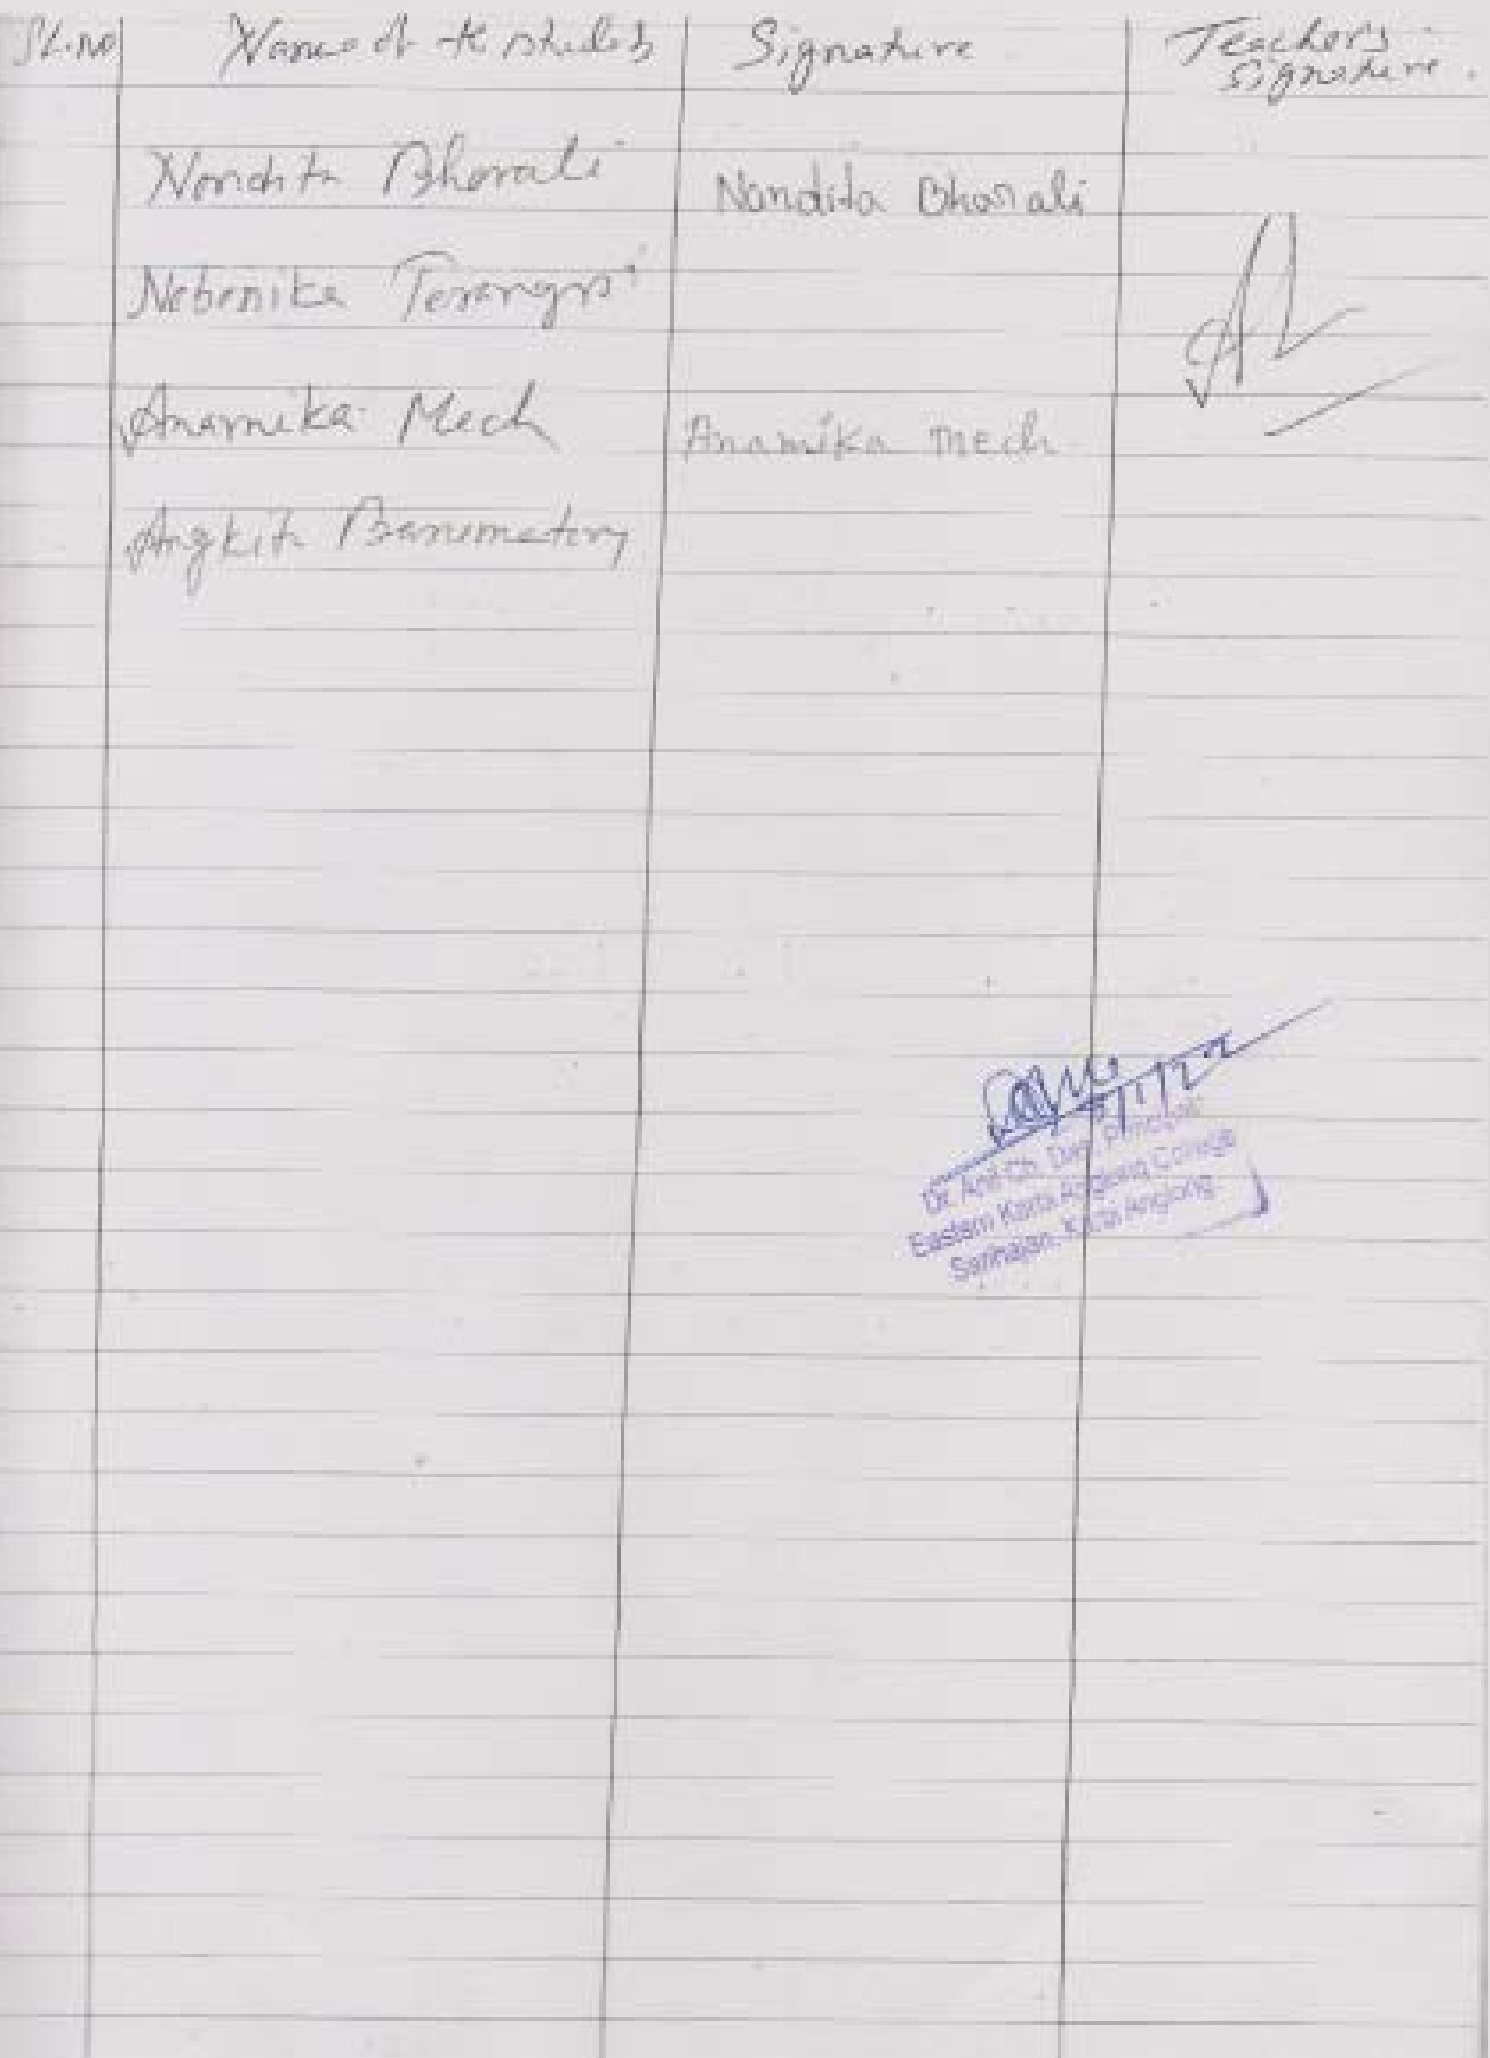 Sl.no Name of the students Signature Teachers Signature.
Nandita Bhorali Nandita Bhorali
Nebenika Terangpi
Anamika Mech Anamika Mech
Angkita Basumatary
5/1/22
Dr. Anil Ch. Das, Principal
Eastern Karbi Anglong College
Sarihajan, Karbi Anglong.